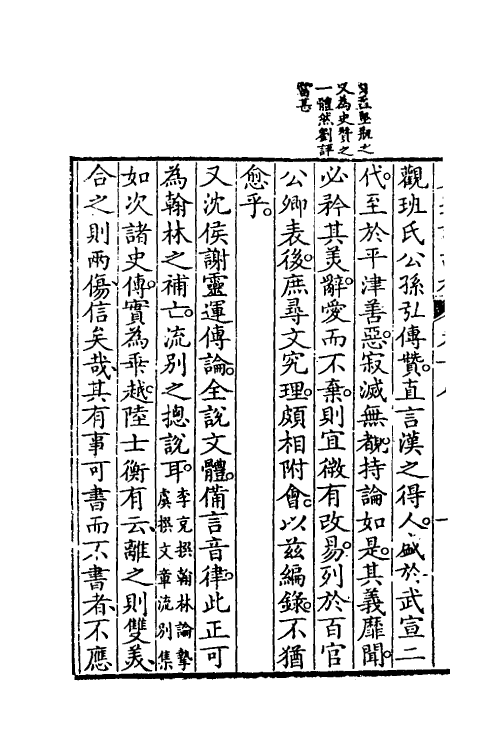 觀班氏公孫弘傳贊直言漢之得人盛於武宣二
代至於平津善惡寂滅無覩持論如是其義靡聞
必矜其美辭愛而不棄則宜微有改易列於百官
公卿表後庶尋文究理頗相附會以兹編錄不猶
愈乎
又沈侯謝靈運傳論全說文體備言音律此正可
為翰林之補亡流別之揔說耳李充撰翰林論摯虞撰文章流別集
如次諸史傳實為乖越陸士衡有云離之則雙美
合之則兩傷信矣哉其有事可書而不書者不應
堅觀之
又為史贊之
一體然劉評
當甚